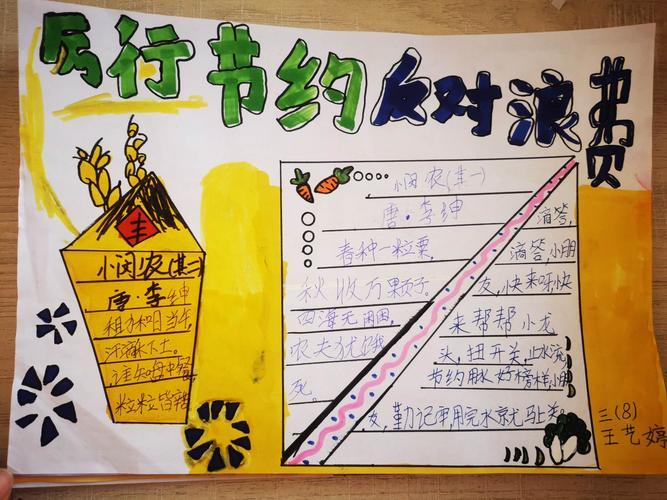 厉行节约反对浪费
丰
小闵农(其二)
唐·李绅
日当午,
汗滴禾下土。
谁知中餐
粒粒皆辛
小闵农(其一)
唐·李绅
春种一粒粟,
秋收万颗子。
四海无闲田,
农夫犹饿
死。
滴答,
滴答,小朋
友,快来呀快
来帮帮小龙
头,扭开关,止水流
节约用水好榜样,小朋
友,勤记牢,用完水京尤马上关。
三(8)
王艺婷